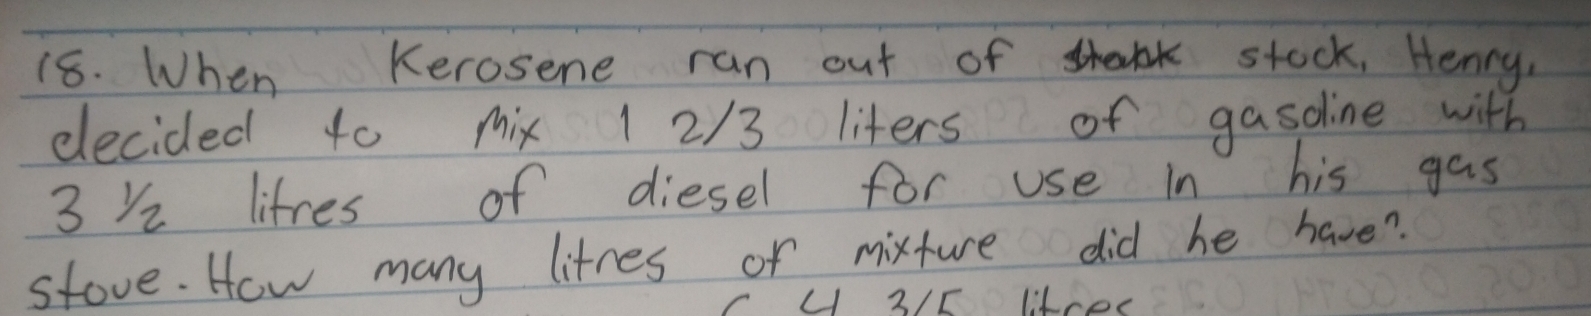 18. When Kerosene ran out of stock, Henry,
decided to mix 1 2/3 liters of gasoline with
3 1/2 litres of diesel for use in his gas
stove. How many litres of mixture did he have?
C 4 3/5 litres